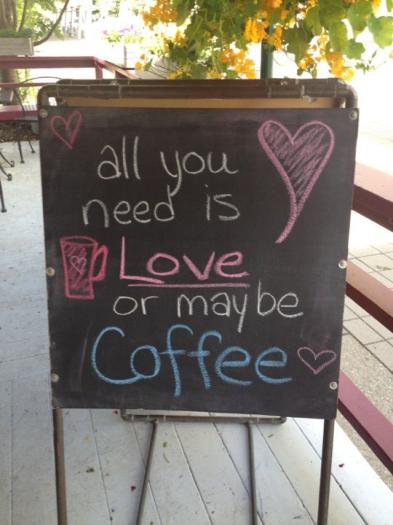 all you
need is
Love
or maybe
Coffee